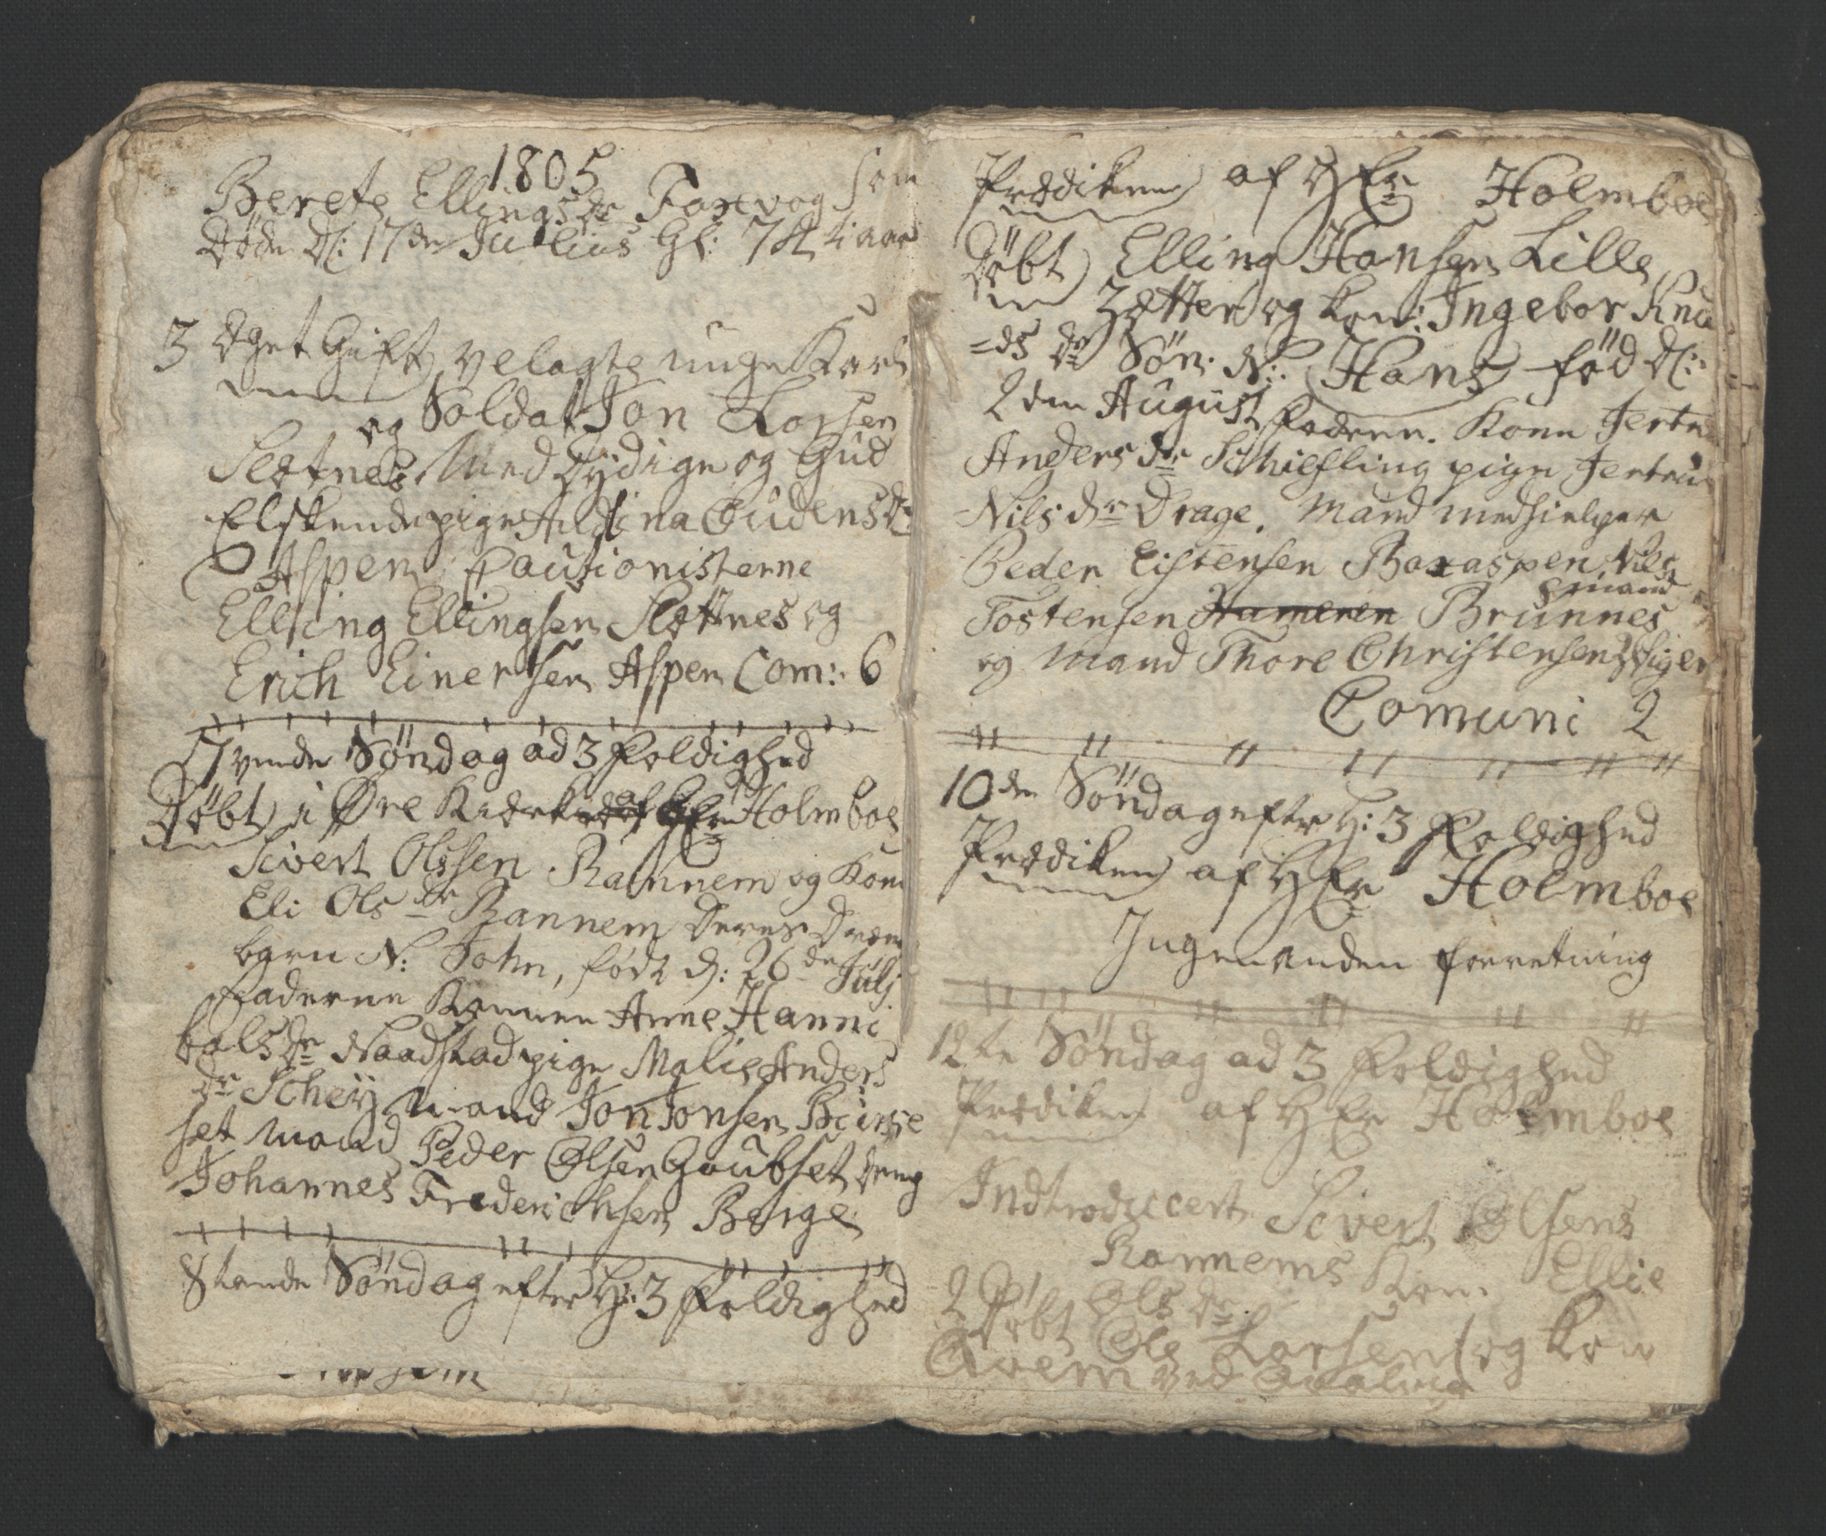 1805
Berete Ellingsdr Farvog som
Døde d: 17de Julius Gl: 74 ti aar
3 Eget Gift, velagte unge Karl
og Soldat Jon Larsen
Slætnes, Med Dydige og Gud
Elskende pige Andina Eudensdr
Aspen Cautionisterne
Elling Ellingsen Slættnes og
Erich Einersen Aspen Com: 6
Syvende Søndag ad 3 Foldighed
Døbt i Øre Kirke af HEr Holmboe
Sivert Olssen Rannem og Kone
Eli Ols dr Rannem Deres Dreng
barn N: John, født d: 26de Julj
Faderne Konnen Anne Hanni
bals dr Naadstad pige Malie Anders
dr Scheÿ mand Jon Jonsen Børse
set mand Peder Olsen Gaubset dreng
Johannes Frederichsen Berge
8tende Søndag efter H: 3 Foldighed
Prædiken af HEr Holmboe
Døbt Elling Hansen Lille
Zætter og kon: Ingebor Knu
=ds dr Søn N: Hans fød d:
2den August Faderne. Konn Jertru
Anders dr Schiefling pige Jertru
Nils dr Drage. Mand medhielper
Peder Eistensen Boxaspen Nils
Tostensen Hameren Brunnes
mand
og mand Thore Christensen
Comuni 2
10de Søndag efter H: 3 Foldighed
Prædiken af HEr Holmboe
Ingen anden forretning
12te Søndag ad 3 Foldighed
Prædiken af HEr Holmboe
Indtroduccert Sivert Olsens
Rannems Kone Ellie
Ols dr
2 Døbt Ole Larsen og Kon
Qvem ved